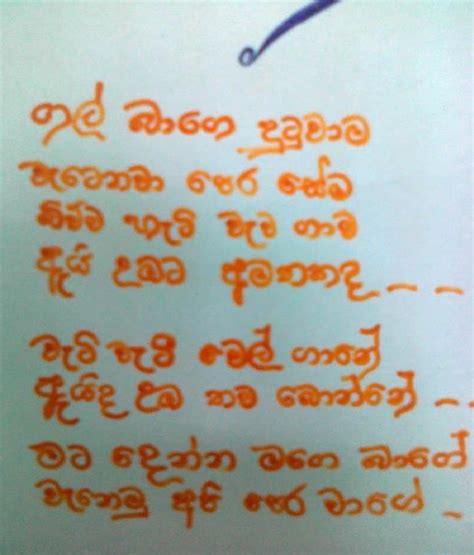 ගල් බාගෙ දුටුවාම
වැටෙනවා පෙර සේම
කිව්ව හැටි වැව ගාව
ඇයි උබට අමතකද _ _
වැටි වැටී වෙල් ගානේ
ඇයිද උබ තව බොන්නේ _ _
මට දෙන්න මගෙ බාගේ
වැනෙමු අපි පෙර වාගේ _